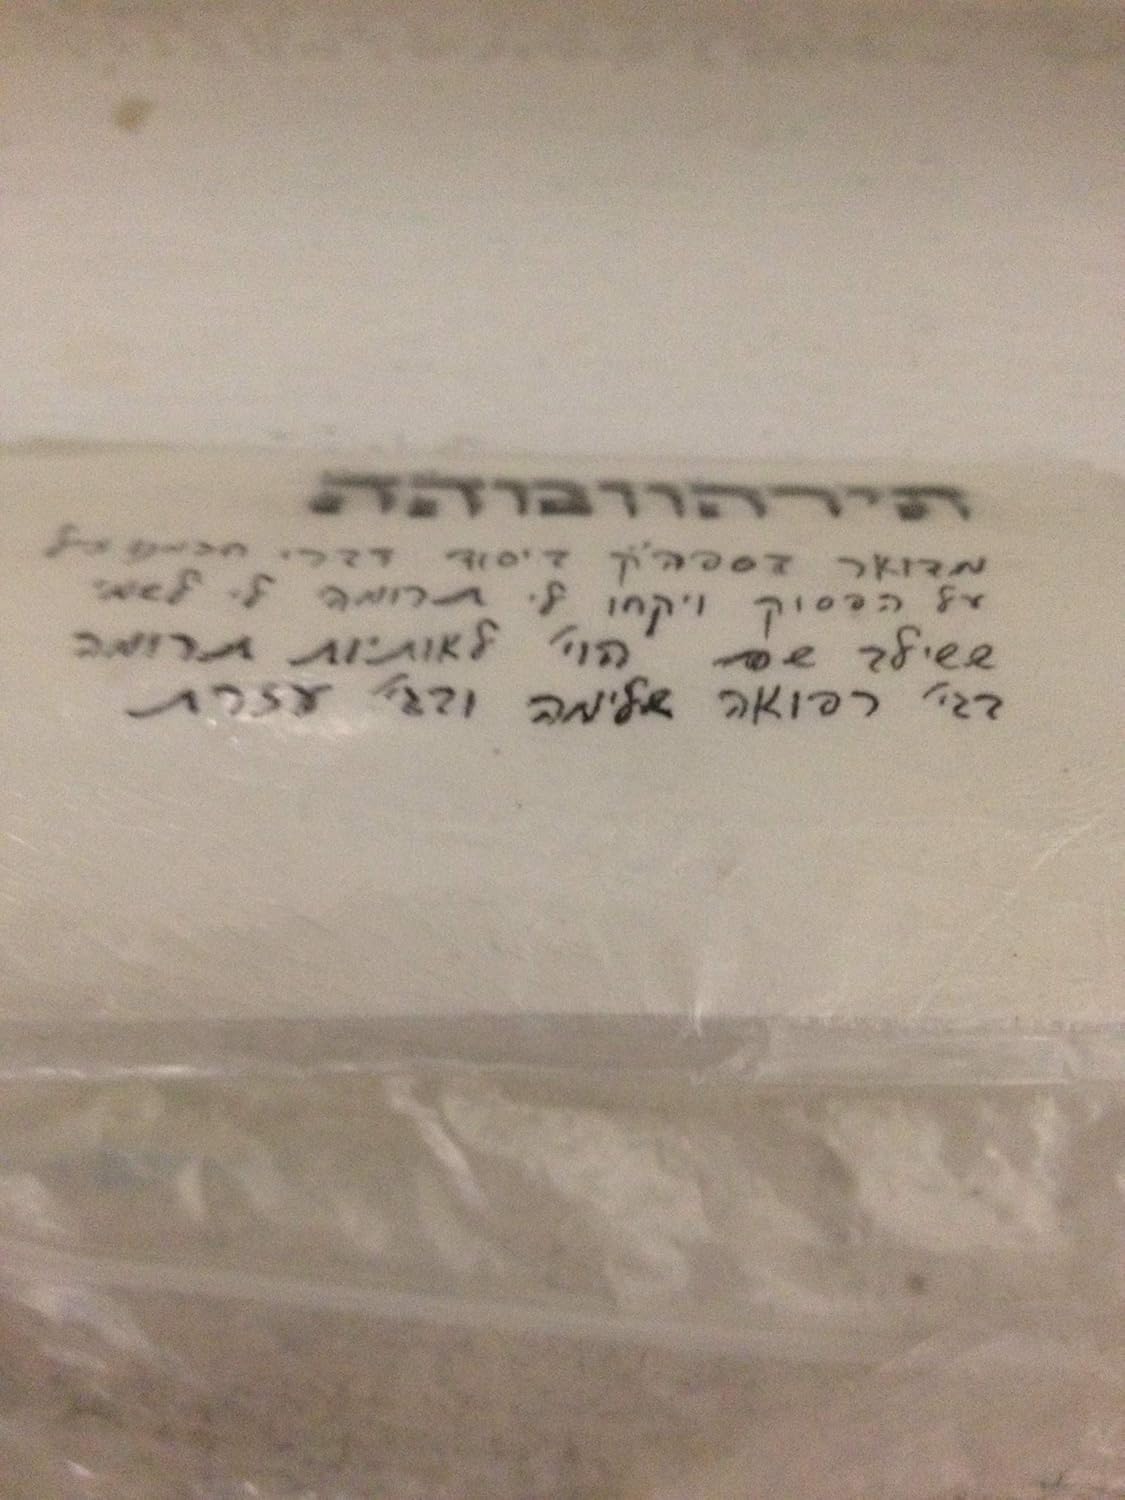 תירהוומהה
מבואר בספה"ק ביסוד דברי חכמים ז"ל
על הפסוק ויקחו לי תרומה לי לשמי
ששילב שם הוי' לאותיות תרומה
בגי' רפואה שלימה ובגי' עזרת